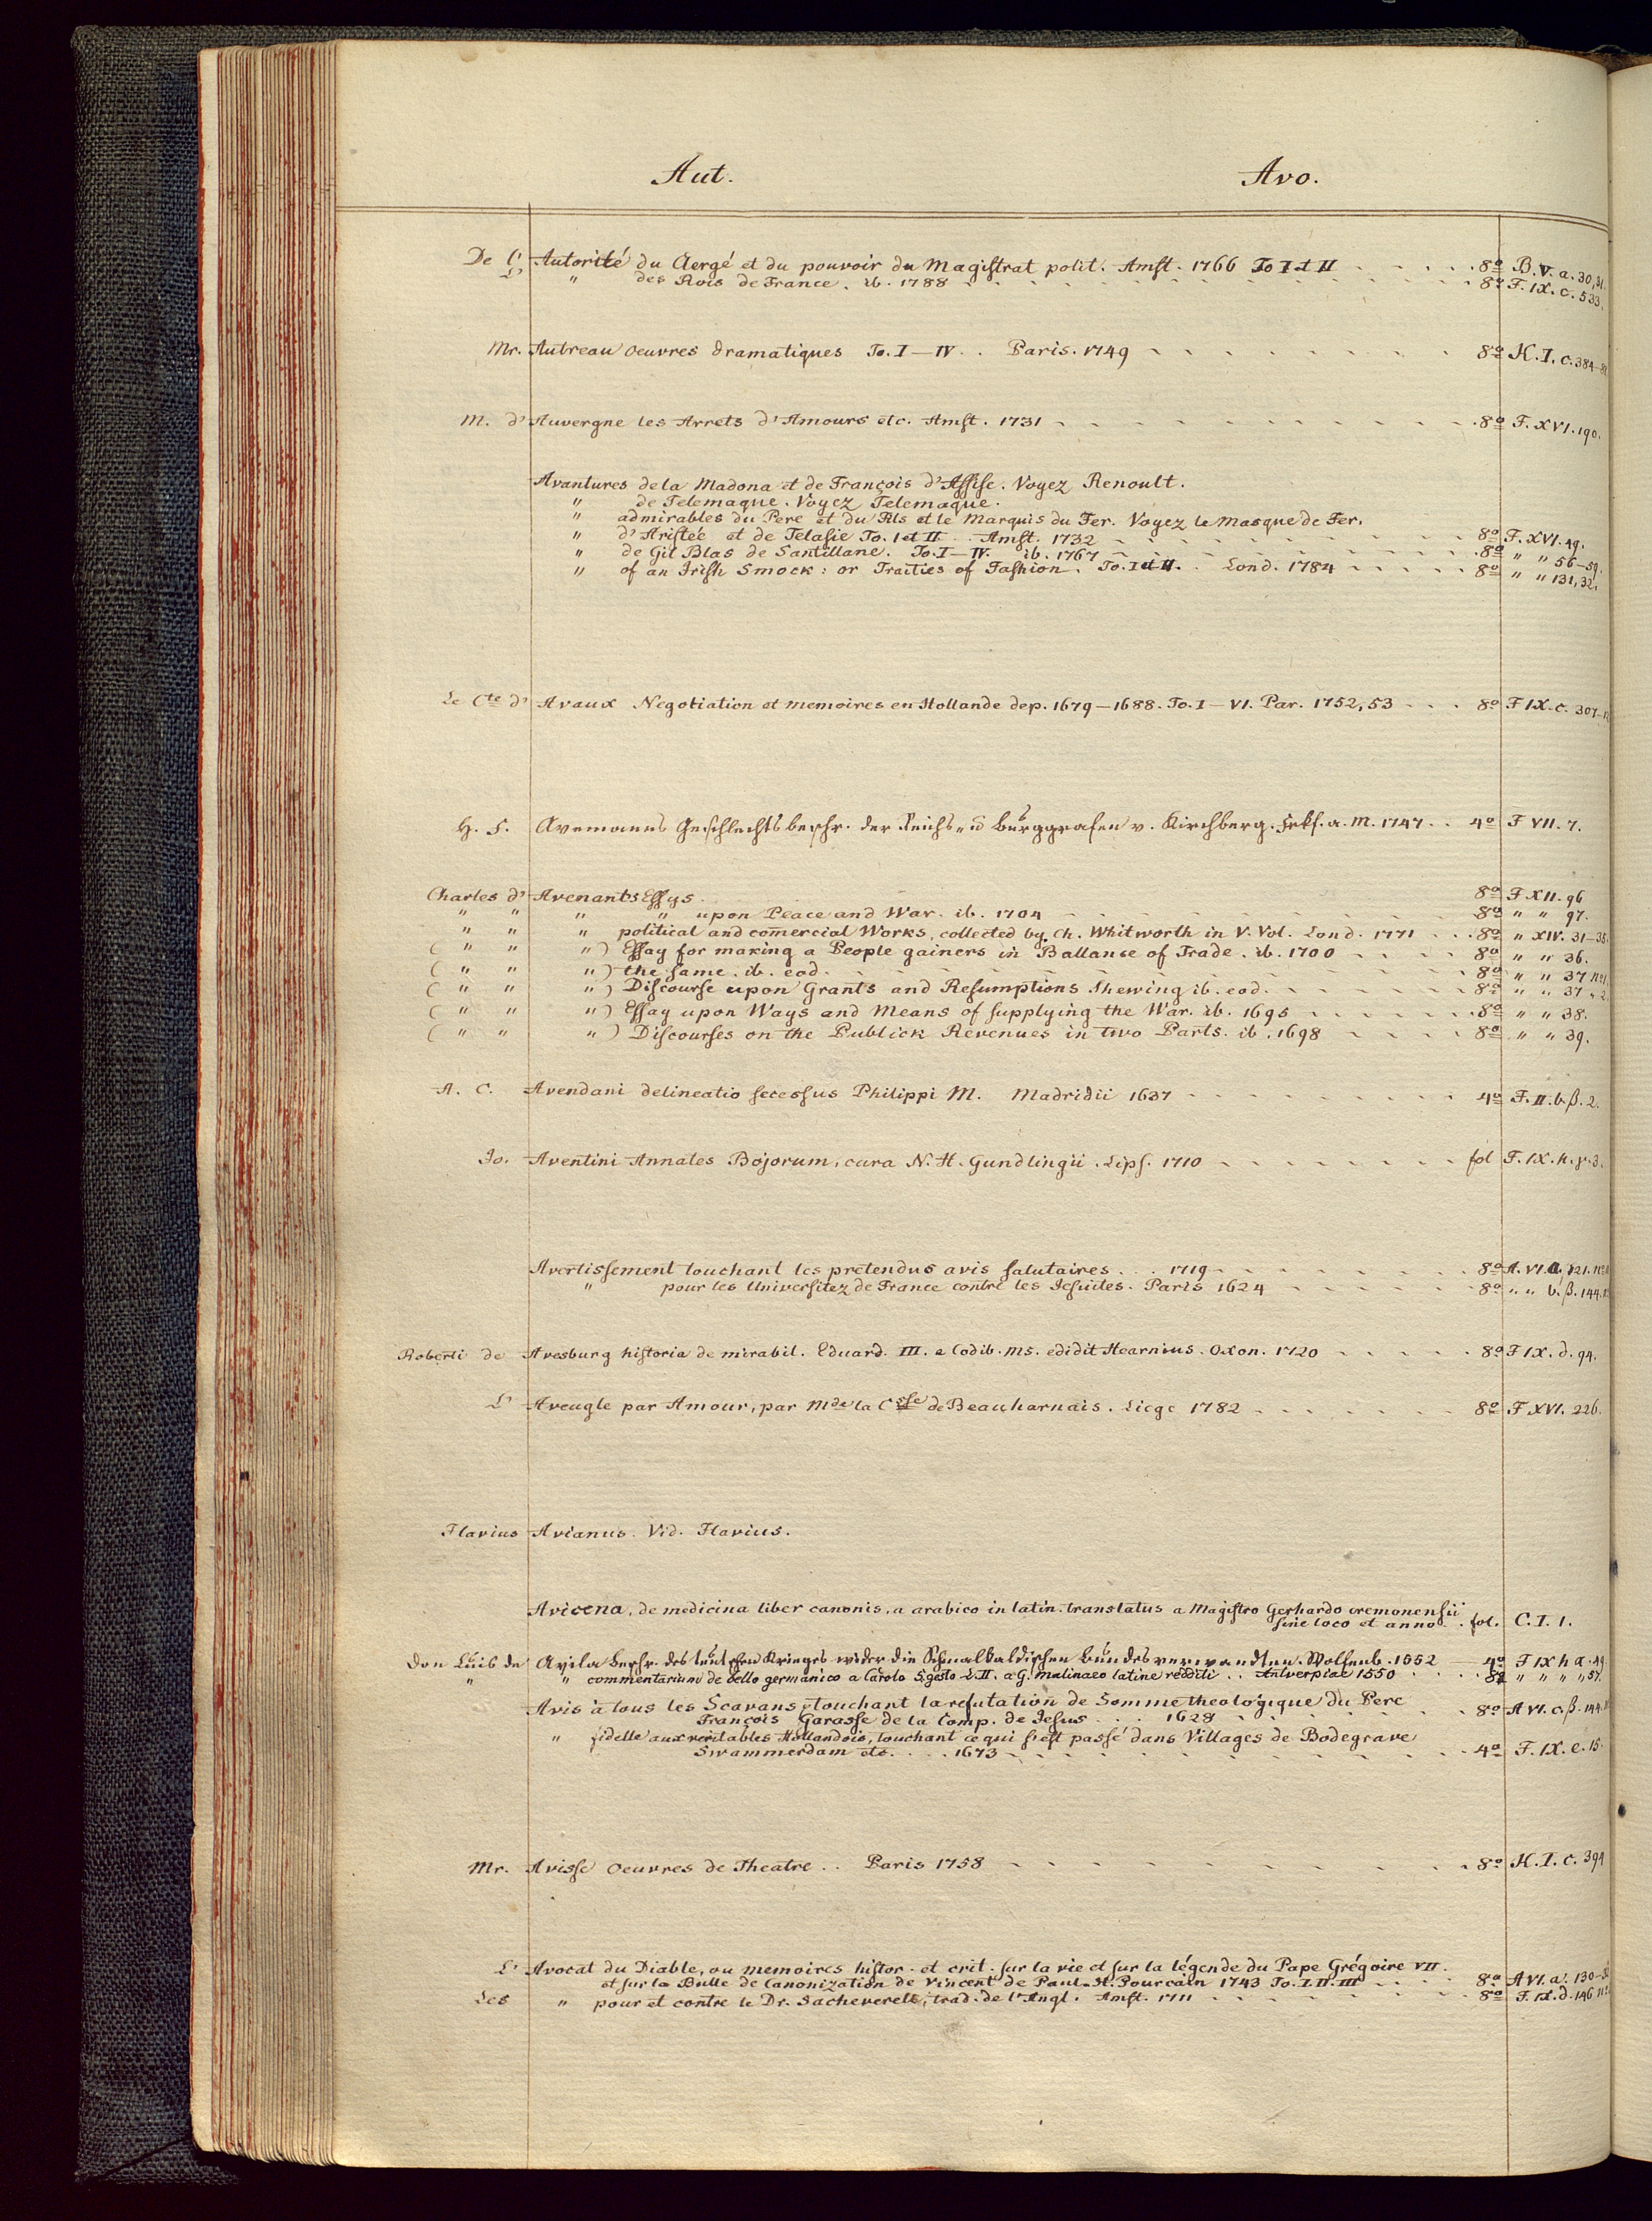 Aut. Avo.
De l' Autorité du Clergé et du pouvoir du Magistrat polit. Amst. 1766 To I et II 8o B. V. a. 30, 31.
L' " des Rois de France. ib. 1788 8o F. IX. c. 533.
Mr. Autreau Oeuvres dramatiques To. I—IV. . Paris. 1749 8o H. I. c. 384
M. d' Auvergne les Arrets d'Amours etc. Amst. 1731 8o F. XVI. 190.
Avantures de la Madona et de François d'Assise. Voyez Renoult.
" de Telemaque. Voyez Telemaque.
" admirables du Pere et du Fils et le Marquis du Fer. Voyez le Masque de Fer.
" d'Aristée et de Telasie To. I et II. . Amst. 1732 8o F. XVI. 49.
" de Gil Blas de Santillane. To. I—IV. ib. 1767 8o " " 56—59.
" of an Irish Smock: or Traities of Fashion. To. I et II. . Lond. 1784 8o " " 131, 32.
Le Cte d' Avaux Negotiation et memoires en Hollande dep. 1679—1688. To. I—VI. Par. 1752, 53 8o F IX. c. 307
H. F. Avemanns Geschlechtsbeschr. der Reichs- u Burggrafen v. Kirchberg. Frkf. a. M. 1747. . 4o F VII. 7.
Charles d' Avenants Essys 8o F XII. 96
" " " " upon Peace and War. ib. 1704 8o " " 97.
" " " political and comercial Works, collected by Ch. Whitworth in V. Vol. Lond. 1771 8o " XIV. 31—35.
( " " ") Essay for making a People gainers in Ballanse of Trade. ib. 1700 8o " " 36.
( " " ") the same. ib. eod. 8o " " 37 no 1
( " " ") Discourse upon Grants and Resumptions Shewing ib. eod. 8o " " 37 " 2
( " " ") Essay upon Ways and Means of supplying the War. ib. 1695 8o " " 38.
( " " ") Discourses on the Publick Revenues in two Parts. ib. 1698 8o " " 39.
A. C. Avendani delineatio secessus Philippi M. Madridii 1637 4o F. II. b. β. 2.
Jo. Aventini Annales Bojorum, cura N. H. Gundlingii. Lips. 1710 fol F. IX. h. γ. 3.
Avertissement touchant les prétendus avis salutaires . . . 1719 8o A. VI. a. 121. no
" pour les Universitez de France contre les Jesuites. Paris 1624 8o " " b. β. 144.
Roberti de Avesburg historia de mirabil. Eduard. III. e Codib. ms. edidit Hearnius. Oxon. 1720 8o F IX. d. 94.
L' Aveugle par Amour, par Mde la Csse de Beauharnais. Liege 1782 8o F XVI. 226.
Flavius Avianus. Vid. Flavius.
Avicena, de medicina liber canonis, a arabico in latin. translatus a Magistro Gerhardo cremonensii
sine loco et anno. . fol. C. I. 1.
Don Luis de Avila beschr. des teutschen Krieges wider die Schmalkaldischen Bundesverwandten. Wolfenb. 1552 4o F IX h a. 49
" " commentarium de bello germanico a Carolo Vgesto L. II. a G. Malinaeo latine redditi . . Antverpiae 1550 8o " " " " 57.
Avis à tous les Scavans, touchant la refutation de Somme theologique du Pere
François Garasse de la Comp. de Jesus . . . 1628 8o A VI. c. β. 144.
" fidelle aux veritables Hollandois, touchant ce qui s'est passé dans Villages de Bodegrave
Swammerdam etc. . . . 1673 4o F. IX. e. 15.
Mr. Avisse Oeuvres de Theatre . . Paris 1758 8o H. I. c. 394
L' Avocat du Diable, ou memoires histor. et crit. sur la vie et sur la légende du Pape Grégoire VII.
et sur la Bulle de Canonization de Vincent de Paul. St. Pourcain 1743 To. I. II. III 8o A VI. a. 130
Les " pour et contre le Dr. Sacheverell, trad. de l'Angl. Amst. 1711 8o F. IX. d. 146 no